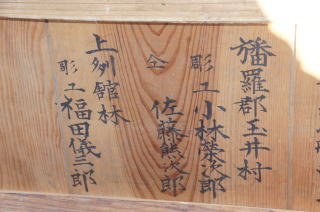 旛羅郡玉井村
彫工小林榮次郎
仝 佐藤熊次郎
上刕舘林
彫工福田儀三郎